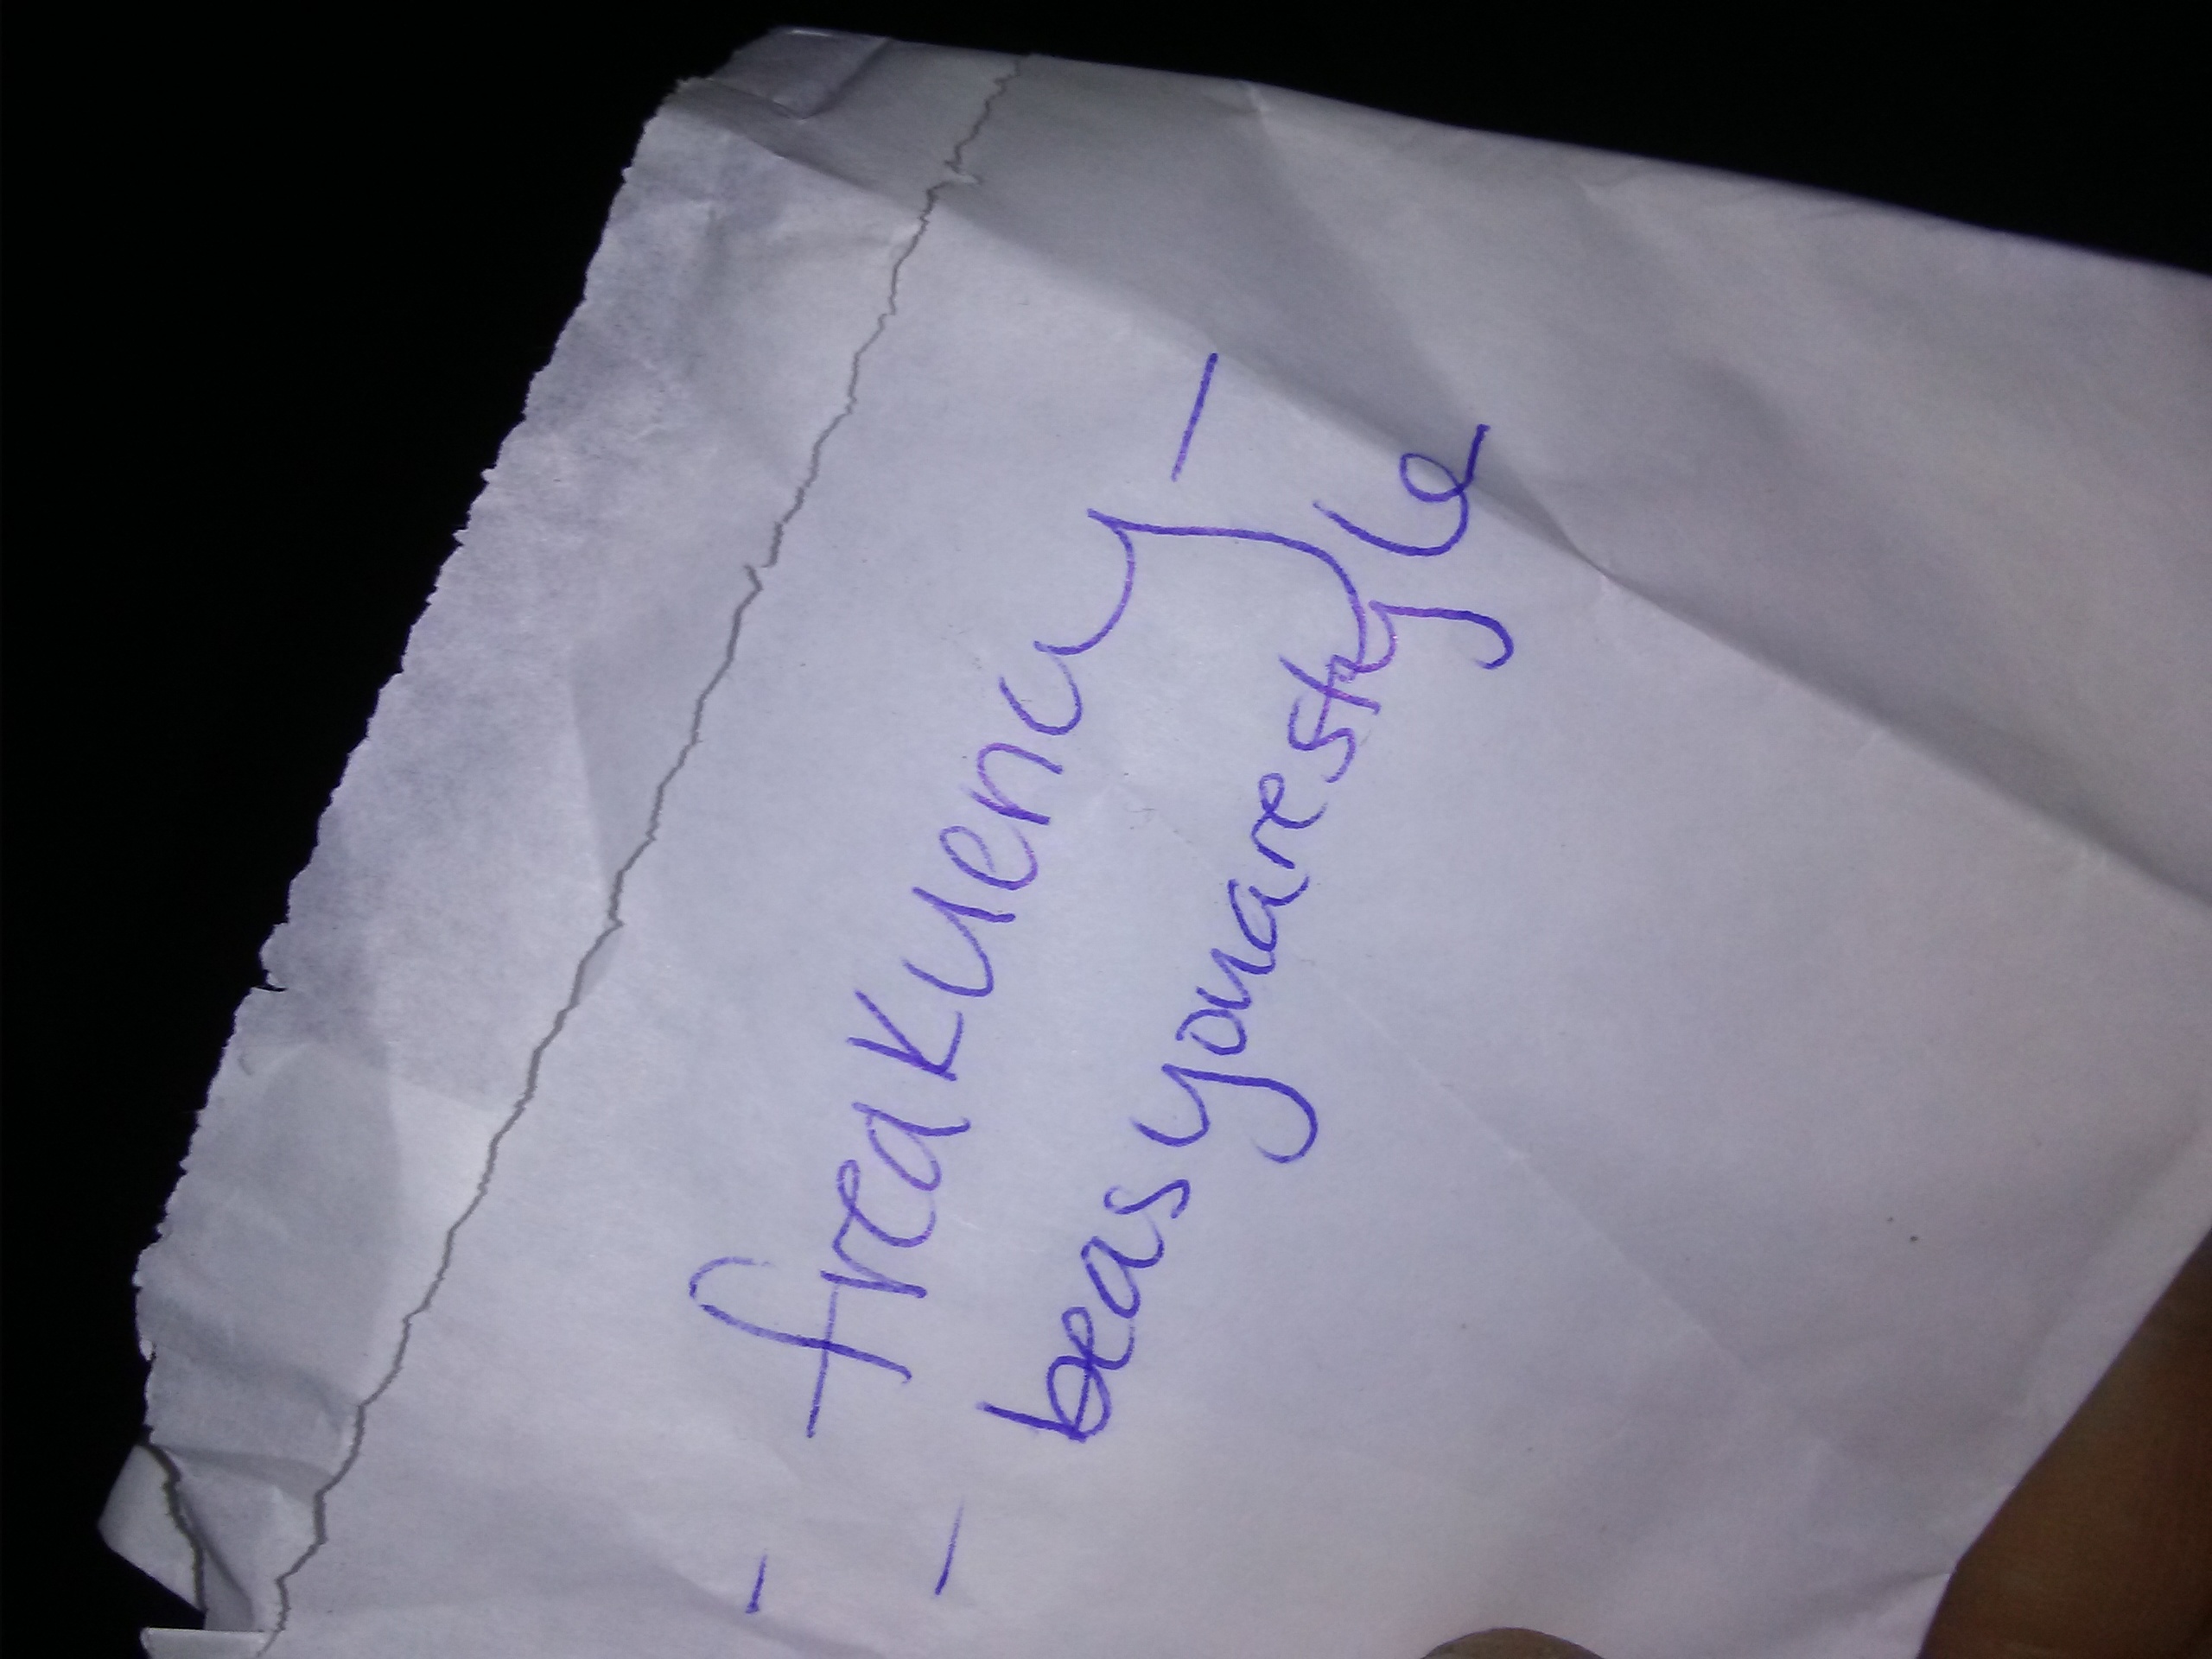 - freakuency -
- beasyouarestyle